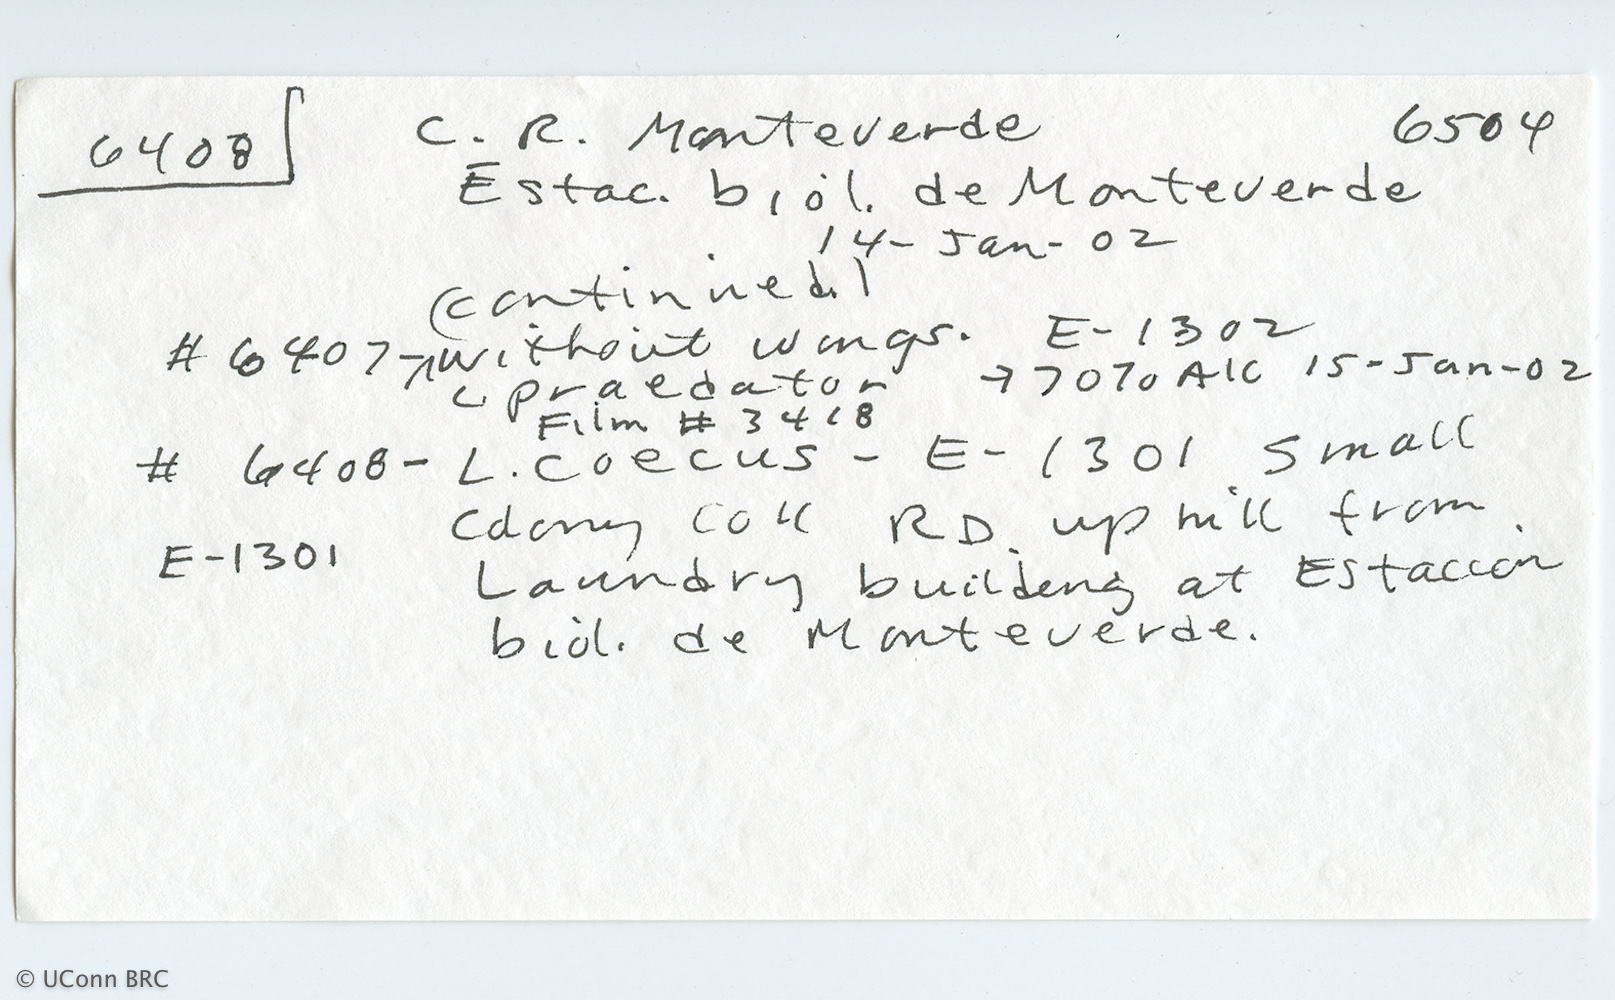 6408 C. R. Monteverde 6504
Estac. biol. de Monteverde
14-Jan-02
(continued)
# 6407 - without wings. E-1302
praedator → 70% Alc 15-Jan-02
Film # 3418
# 6408 - L. coecus - E-1301 small
Colony Coll RD. uphill from
E-1301
Laundry building at Estaccion
biol. de Monteverde.
© UConn BRC